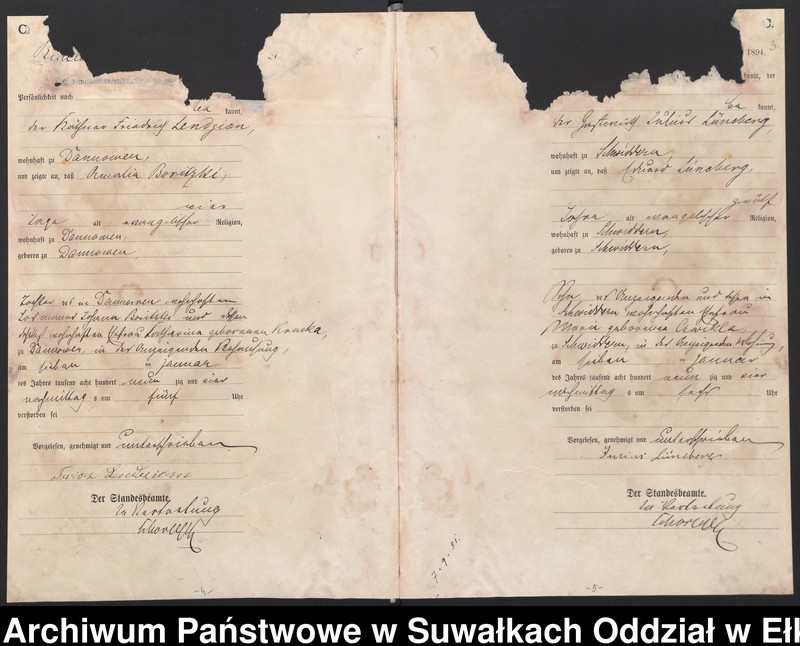 C.
Persönlichkeit nach
kannt,
der Käthner Friedrich Lendzian,
wohnhaft zu Dannowen,
und zeigte an, daß Amalia Boritzki,
vier
Tage alt evangelischer Religion,
wohnhaft zu Dannowen,
geboren zu Dannowen,
Tochter des in Dannowen wohnhaften
und
wohnhaften Ehefrau Katharina geborenen
zu Dannowen, in des Anzeigenden Behausung,
am sieben ten Januar
des Jahres tausend acht hundert neun zig und vier
nachmittags um fünf Uhr
verstorben sei
Vorgelesen, genehmigt und unterschrieben
Der Standesbeamte.
In Vertretung
-4-
C.
1894.
3
heute, der
kannt,
der Gastwirth Julius Lüneberg,
wohnhaft zu Schwiddern,
und zeigte an, daß Eduard Lüneberg,
zwölf
Jahre alt evangelischer Religion,
wohnhaft zu Schwiddern,
geboren zu Schwiddern,
Sohn des Anzeigenden und in
Schwiddern wohnhaften Ehefrau
Maria geborenen
zu Schwiddern, in des Anzeigenden Behausung,
am sieben ten Januar
des Jahres tausend acht hundert neun zig und vier
nachmittags um sechs Uhr
verstorben sei
Vorgelesen, genehmigt und unterschrieben
Julius Lüneberg
Der Standesbeamte.
In Vertretung
-5-
Archiwum Państwowe w Suwałkach Oddział w Ełk